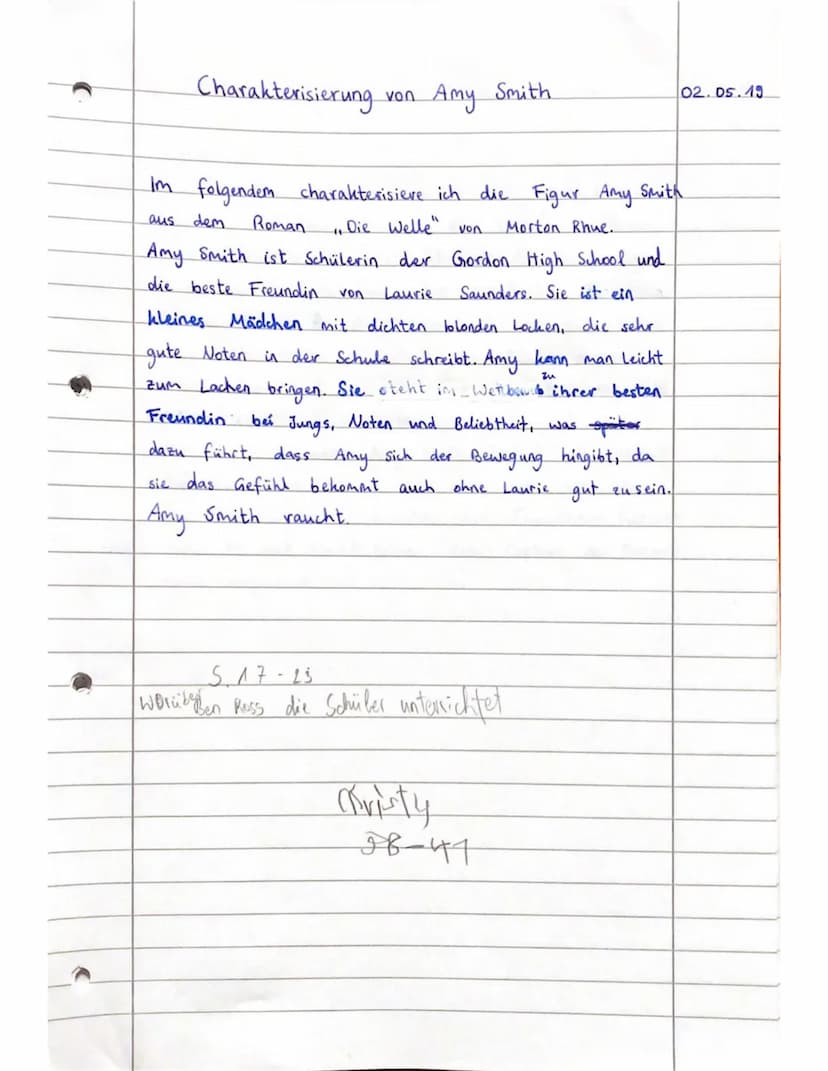 Charakterisierung von Amy Smith
02.05.19
Im folgendem charakterisiere ich die Figur Amy Smith
aus dem Roman „Die Welle“ von Morton Rhue.
Amy Smith ist Schülerin der Gordon High School und
die beste Freundin von Laurie Saunders. Sie ist ein
kleines Mädchen mit dichten blonden Locken, die sehr
gute Noten in der Schule schreibt. Amy kann man leicht
zum Lachen bringen. Sie steht im zu ihrer besten
Freundin bei Jungs, Noten und Beliebtheit, was später
dazu führt, dass Amy sich der Bewegung hingibt, da
sie das Gefühl bekommt auch ohne Laurie gut zu sein.
Amy Smith raucht.
S. 17 - 23
Worüber Ben Ross die Schüler unterrichtet
Christy
38-41